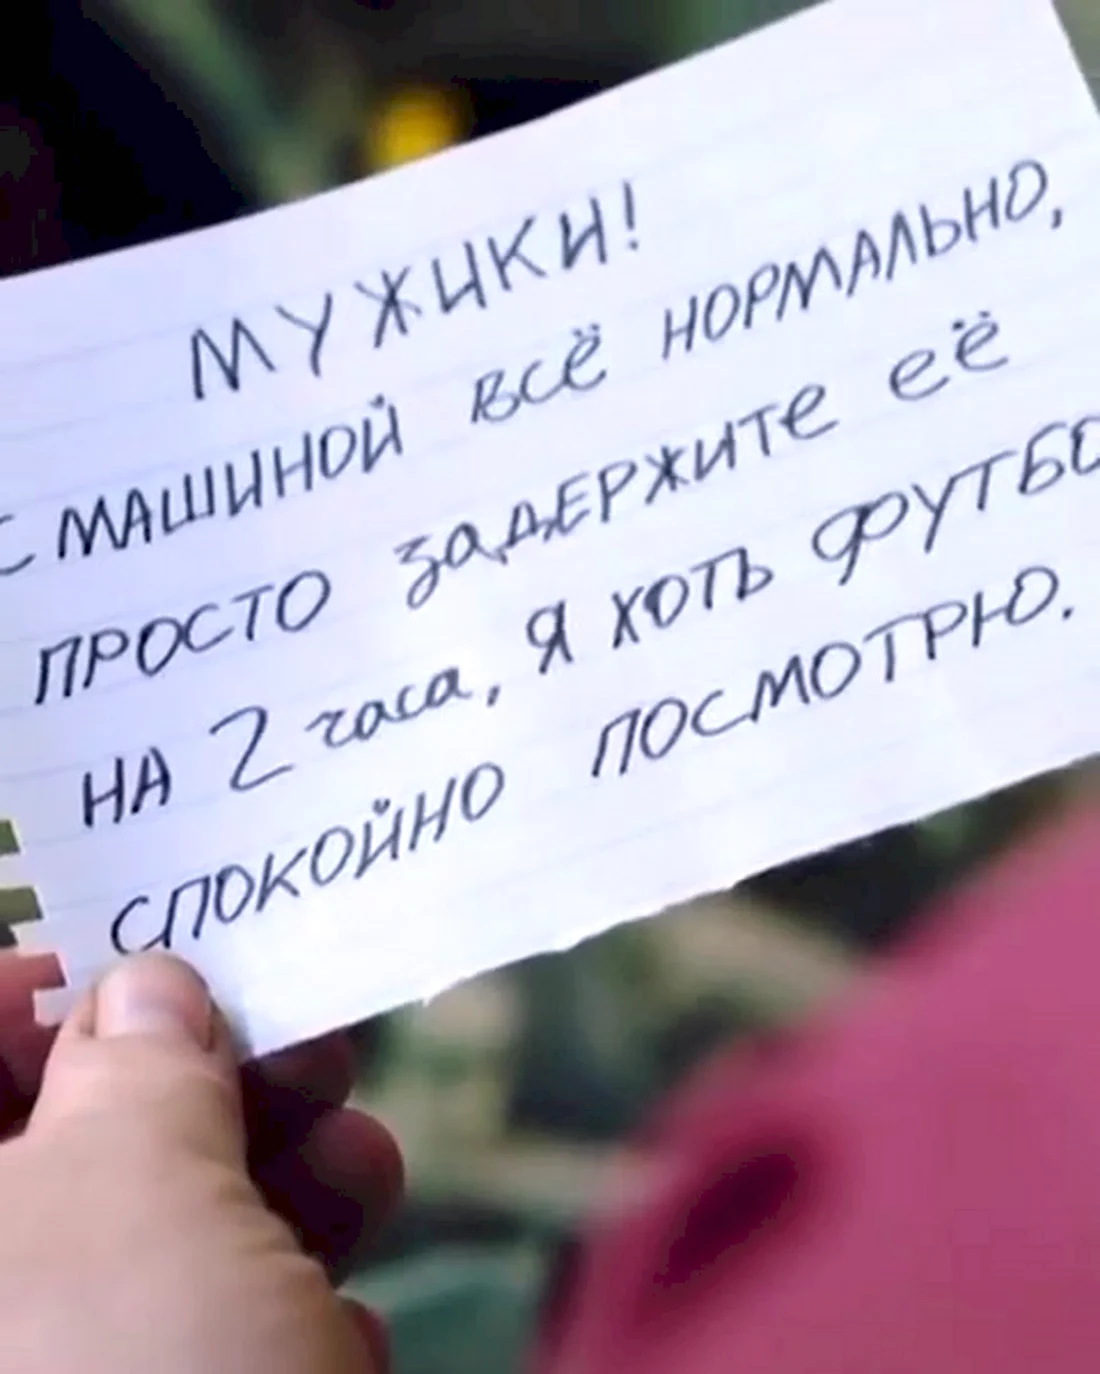 МУЖИКИ!
С МАШИНОЙ ВСЁ НОРМАЛЬНО,
ПРОСТО ЗАДЕРЖИТЕ ЕЁ
НА 2 часа, Я ХОТЬ ФУТБО
СПОКОЙНО ПОСМОТРЮ.